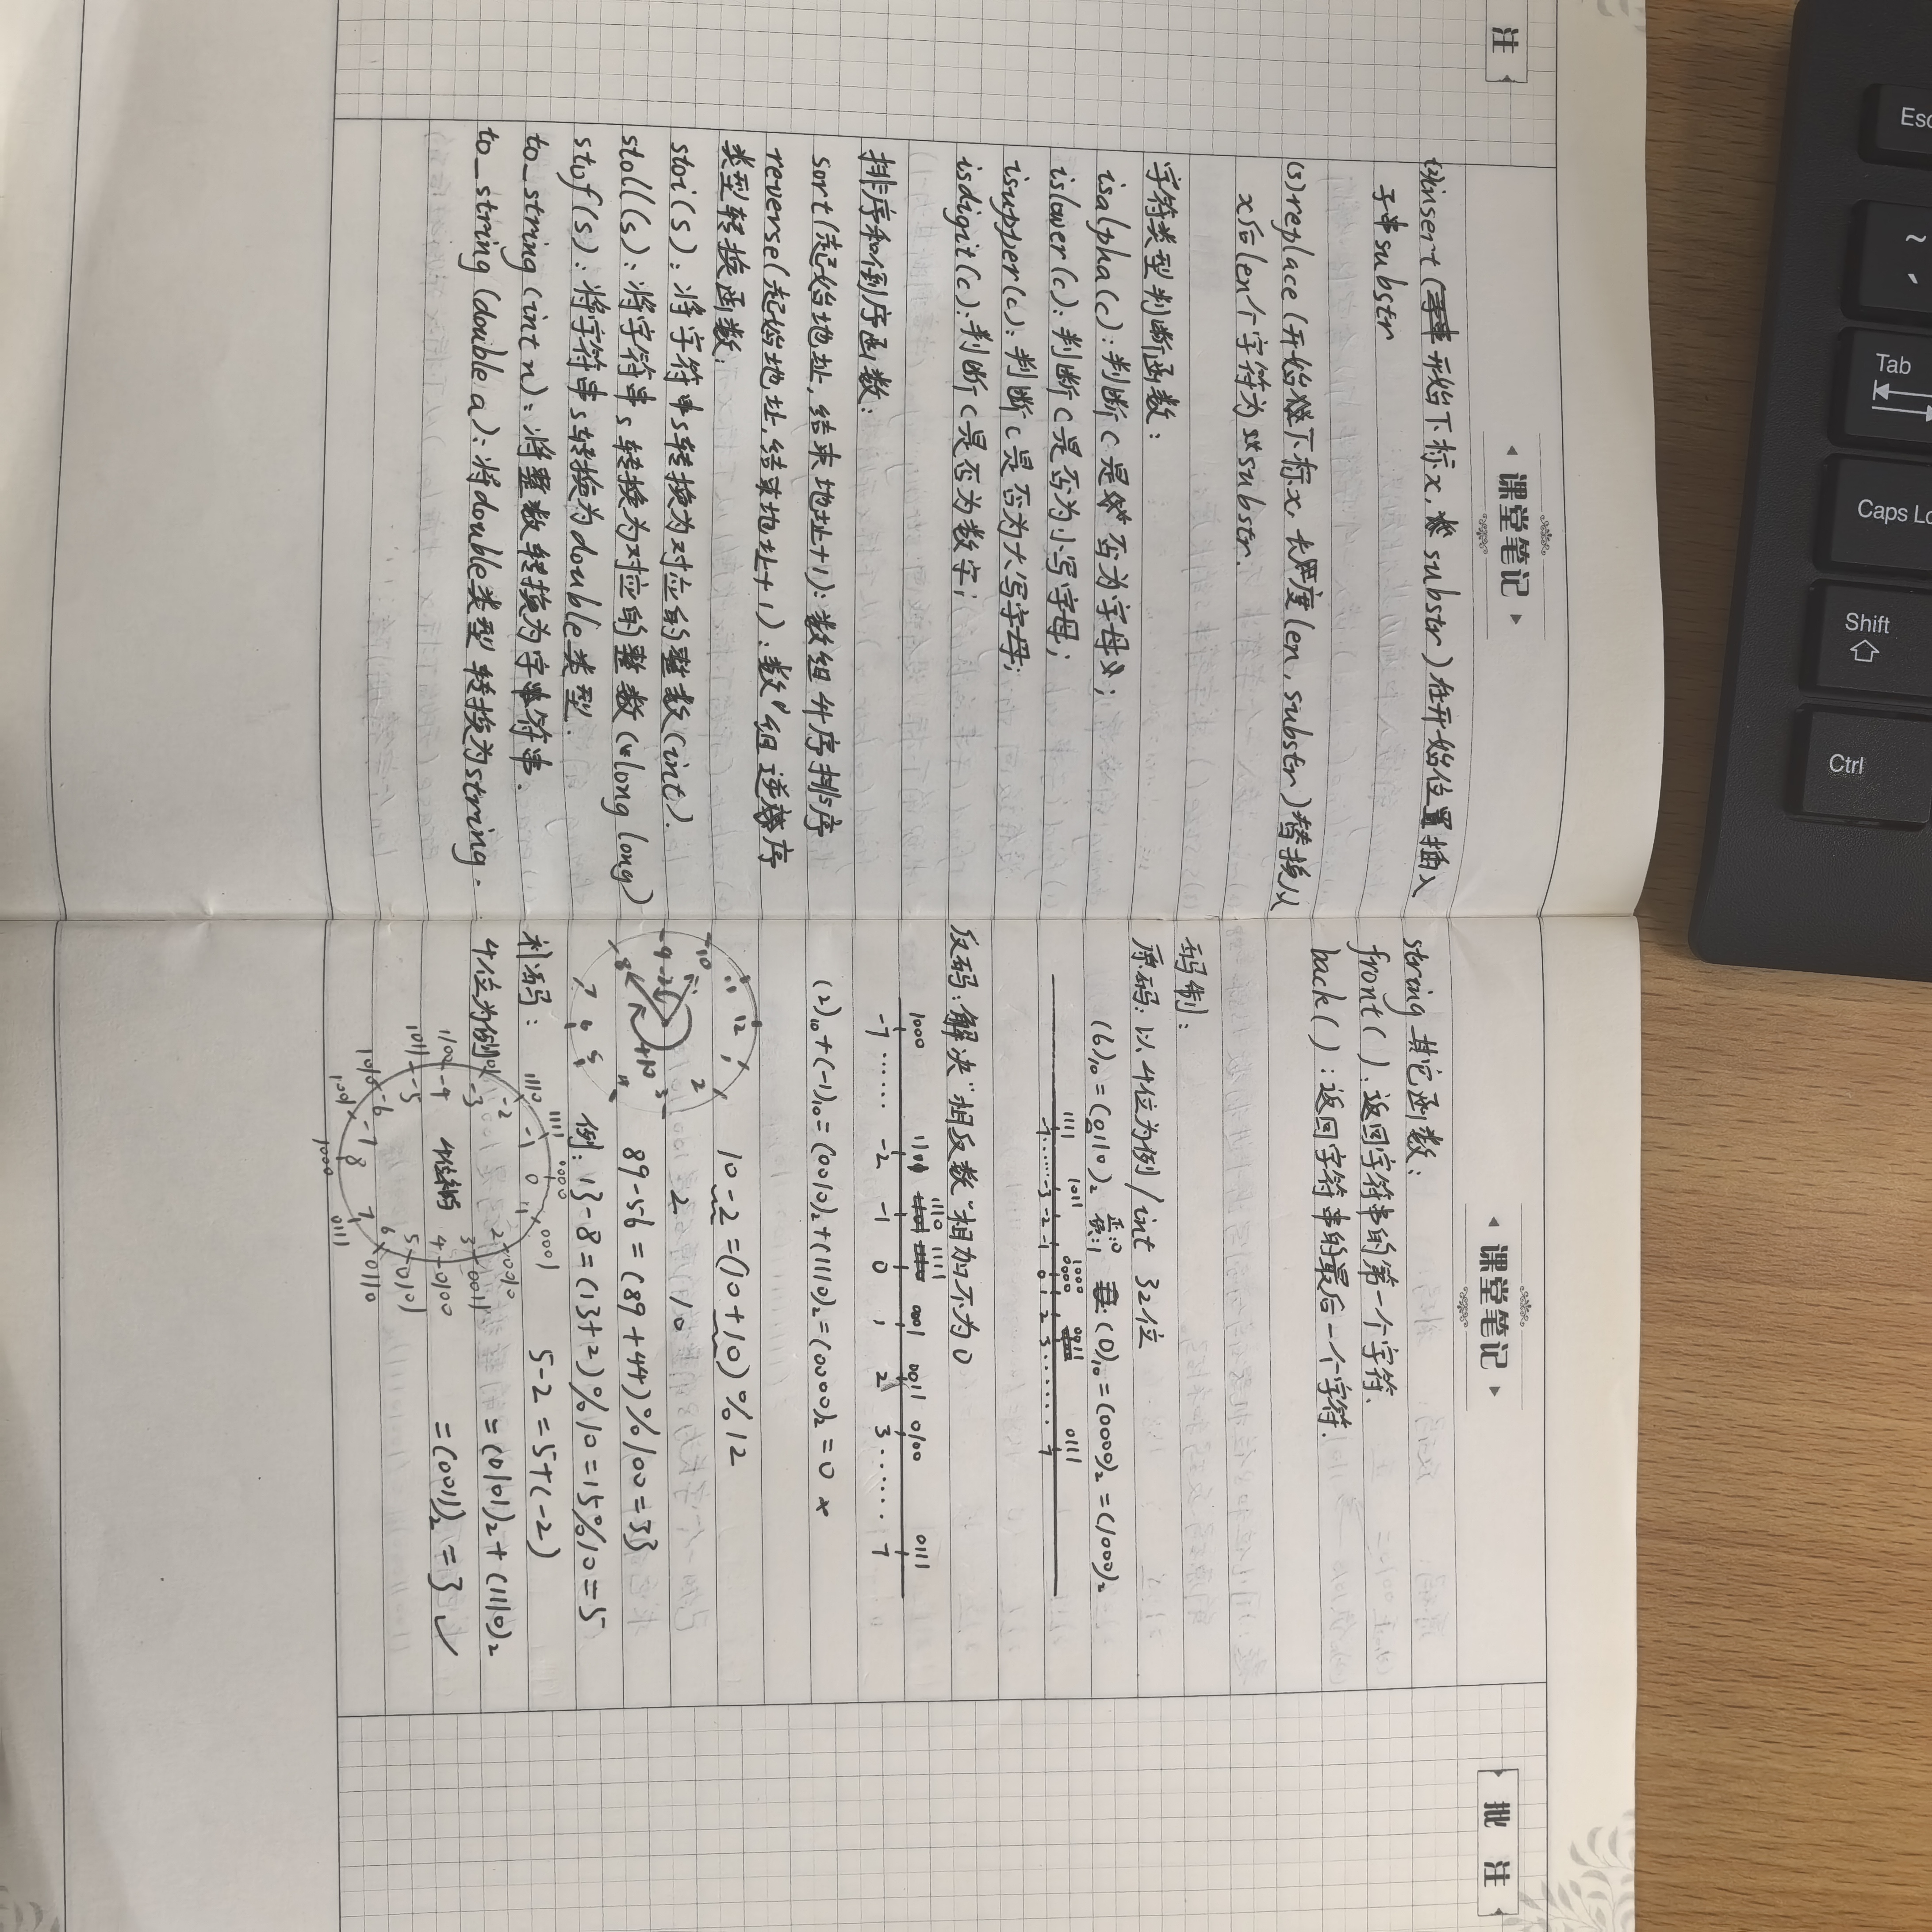 注
课堂笔记
(2)insert(开始下标x, substr)在开始位置插入
子串substr
(3)replace(开始下标x, 长度len, substr)替换从
x后len个字符为substr.
字符类型判断函数:
isalpha(c):判断c是否为字母;
islower(c):判断c是否为小写字母;
isupper(c):判断c是否为大写字母;
isdigit(c):判断c是否为数字;
排序和倒序函数:
sort(起始地址, 结束地址+1):数组升序排序
reverse(起始地址, 结束地址+1):数组逆序
类型转换函数:
stoi(s):将字符串s转换为对应的整数(int).
stoll(s):将字符串s转换为对应的整数(long long)
stof(s):将字符串s转换为double类型.
to_string(int n):将整数转换为字符串.
to_string(double a):将double类型转换为string.
课堂笔记
string其它函数:
front():返回字符串的第一个字符.
back():返回字符串的最后一个字符.
码制:
原码:以4位为例/int 32位
(6)₁₀=(0110)₂ 正:0 负:1 (0)₁₀=(0000)₂=(1000)₂
1111 1011 1000 0000 0011 0111
-7......-3 -2 -1 0 1 2 3....... 7
反码:解决"相反数"相加不为0
1000 1110 1111 0001 0011 0100 0111
-7...... -2 -1 0 1 2 3...... 7
(2)₁₀+(-1)₁₀=(0010)₂+(1110)₂=(0000)₂=0 ×
11 12 1
-10 2
-9 3
8
7 6 5
10-2=(10+10)%12
2 10
89-56=(89+44)%100=33
例:13-8=(13+2)%10=15%10=5
补码:
5-2=5+(-2)
4位为例
=(0101)₂+(1110)₂
=(0011)₂=3 ✓
1111 0000 0001
1110 -2 -1 0 1 2 0010
-3 3 0011
1100 -4 4 0100
1011 -5 5 0101
1010 -6 6 0110
1001 -7 8 7 0111
1000
批 注
Esc
~
Tab
Caps Lo
Shift
Ctrl